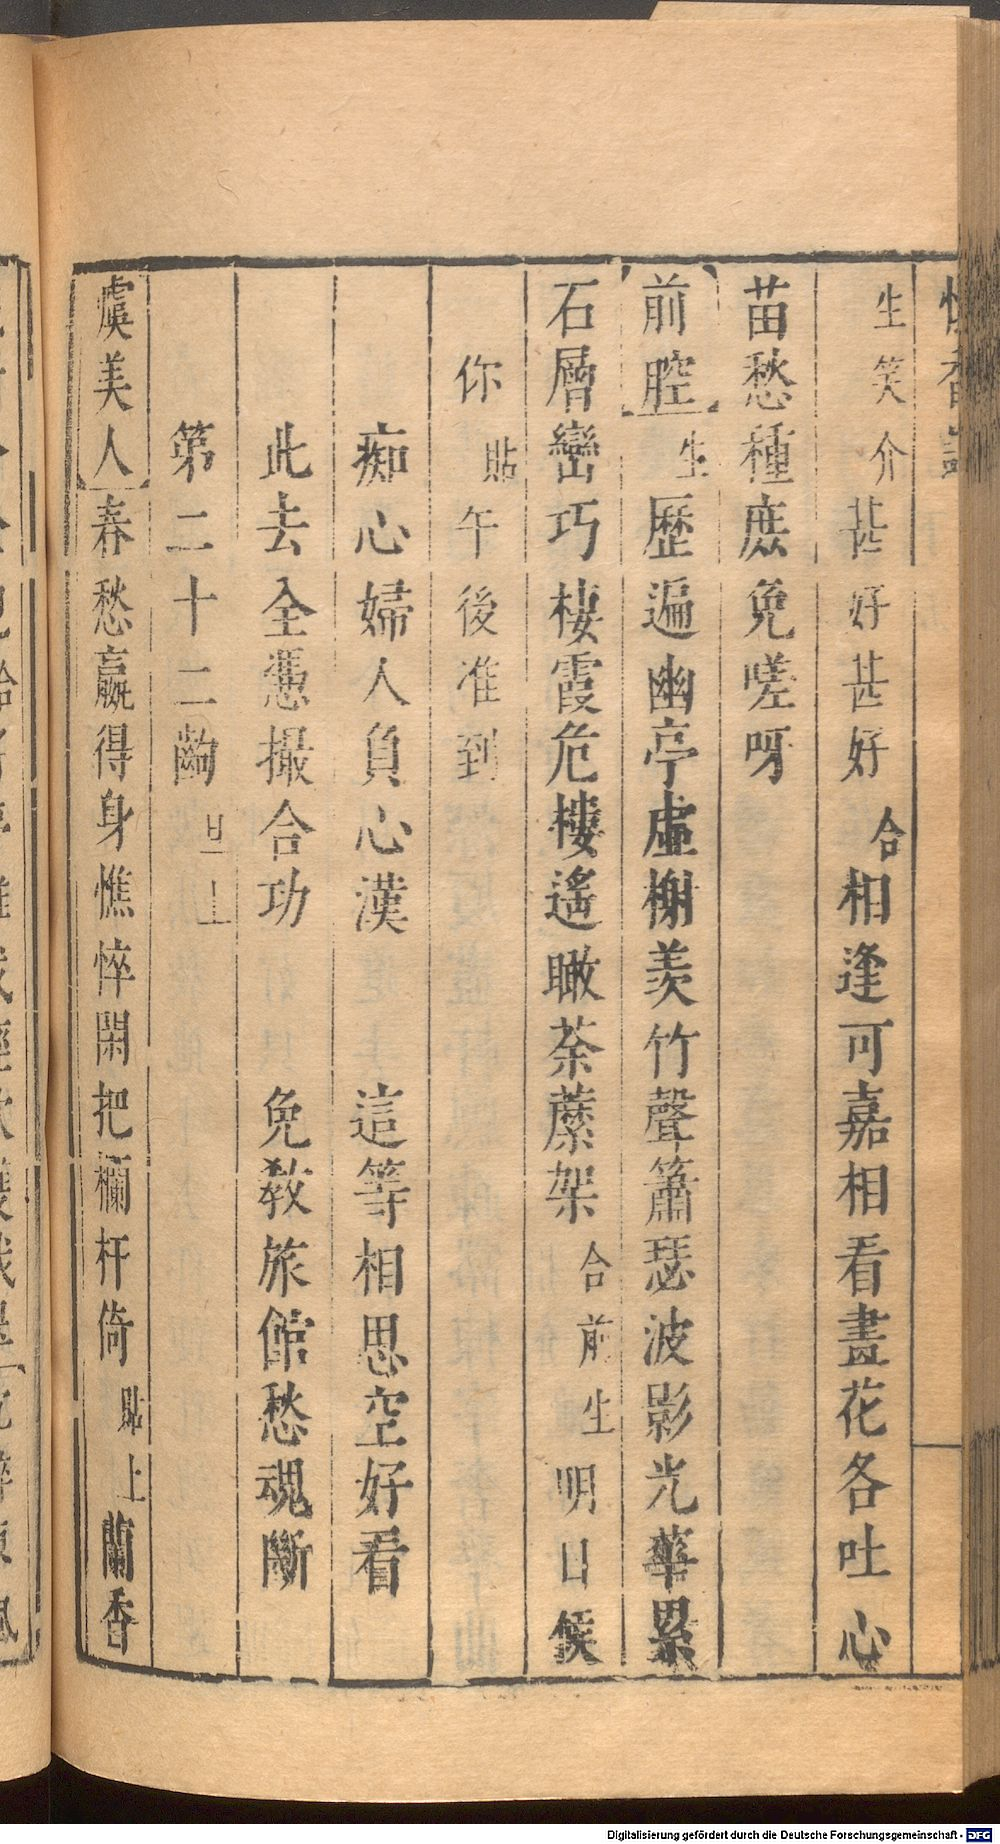 生笑介甚好甚好合相逢可嘉相看畫花各吐心
苗愁種庶免嗟呀
前腔生歷遍幽亭虛榭羨竹聲簫瑟波影光華累
石層巒巧棲霞危樓遙瞰荼蘼架合前生明日候
你貼午後准到
痴心婦人負心漢　這等相思空好看
此去全憑撮合功　免教旅館愁魂斷
第二十二齣旦上
虞美人春愁贏得身憔悴閑把欄杆倚貼上蘭香
Digitalisierung gefördert durch die Deutsche Forschungsgemeinschaft - DFG